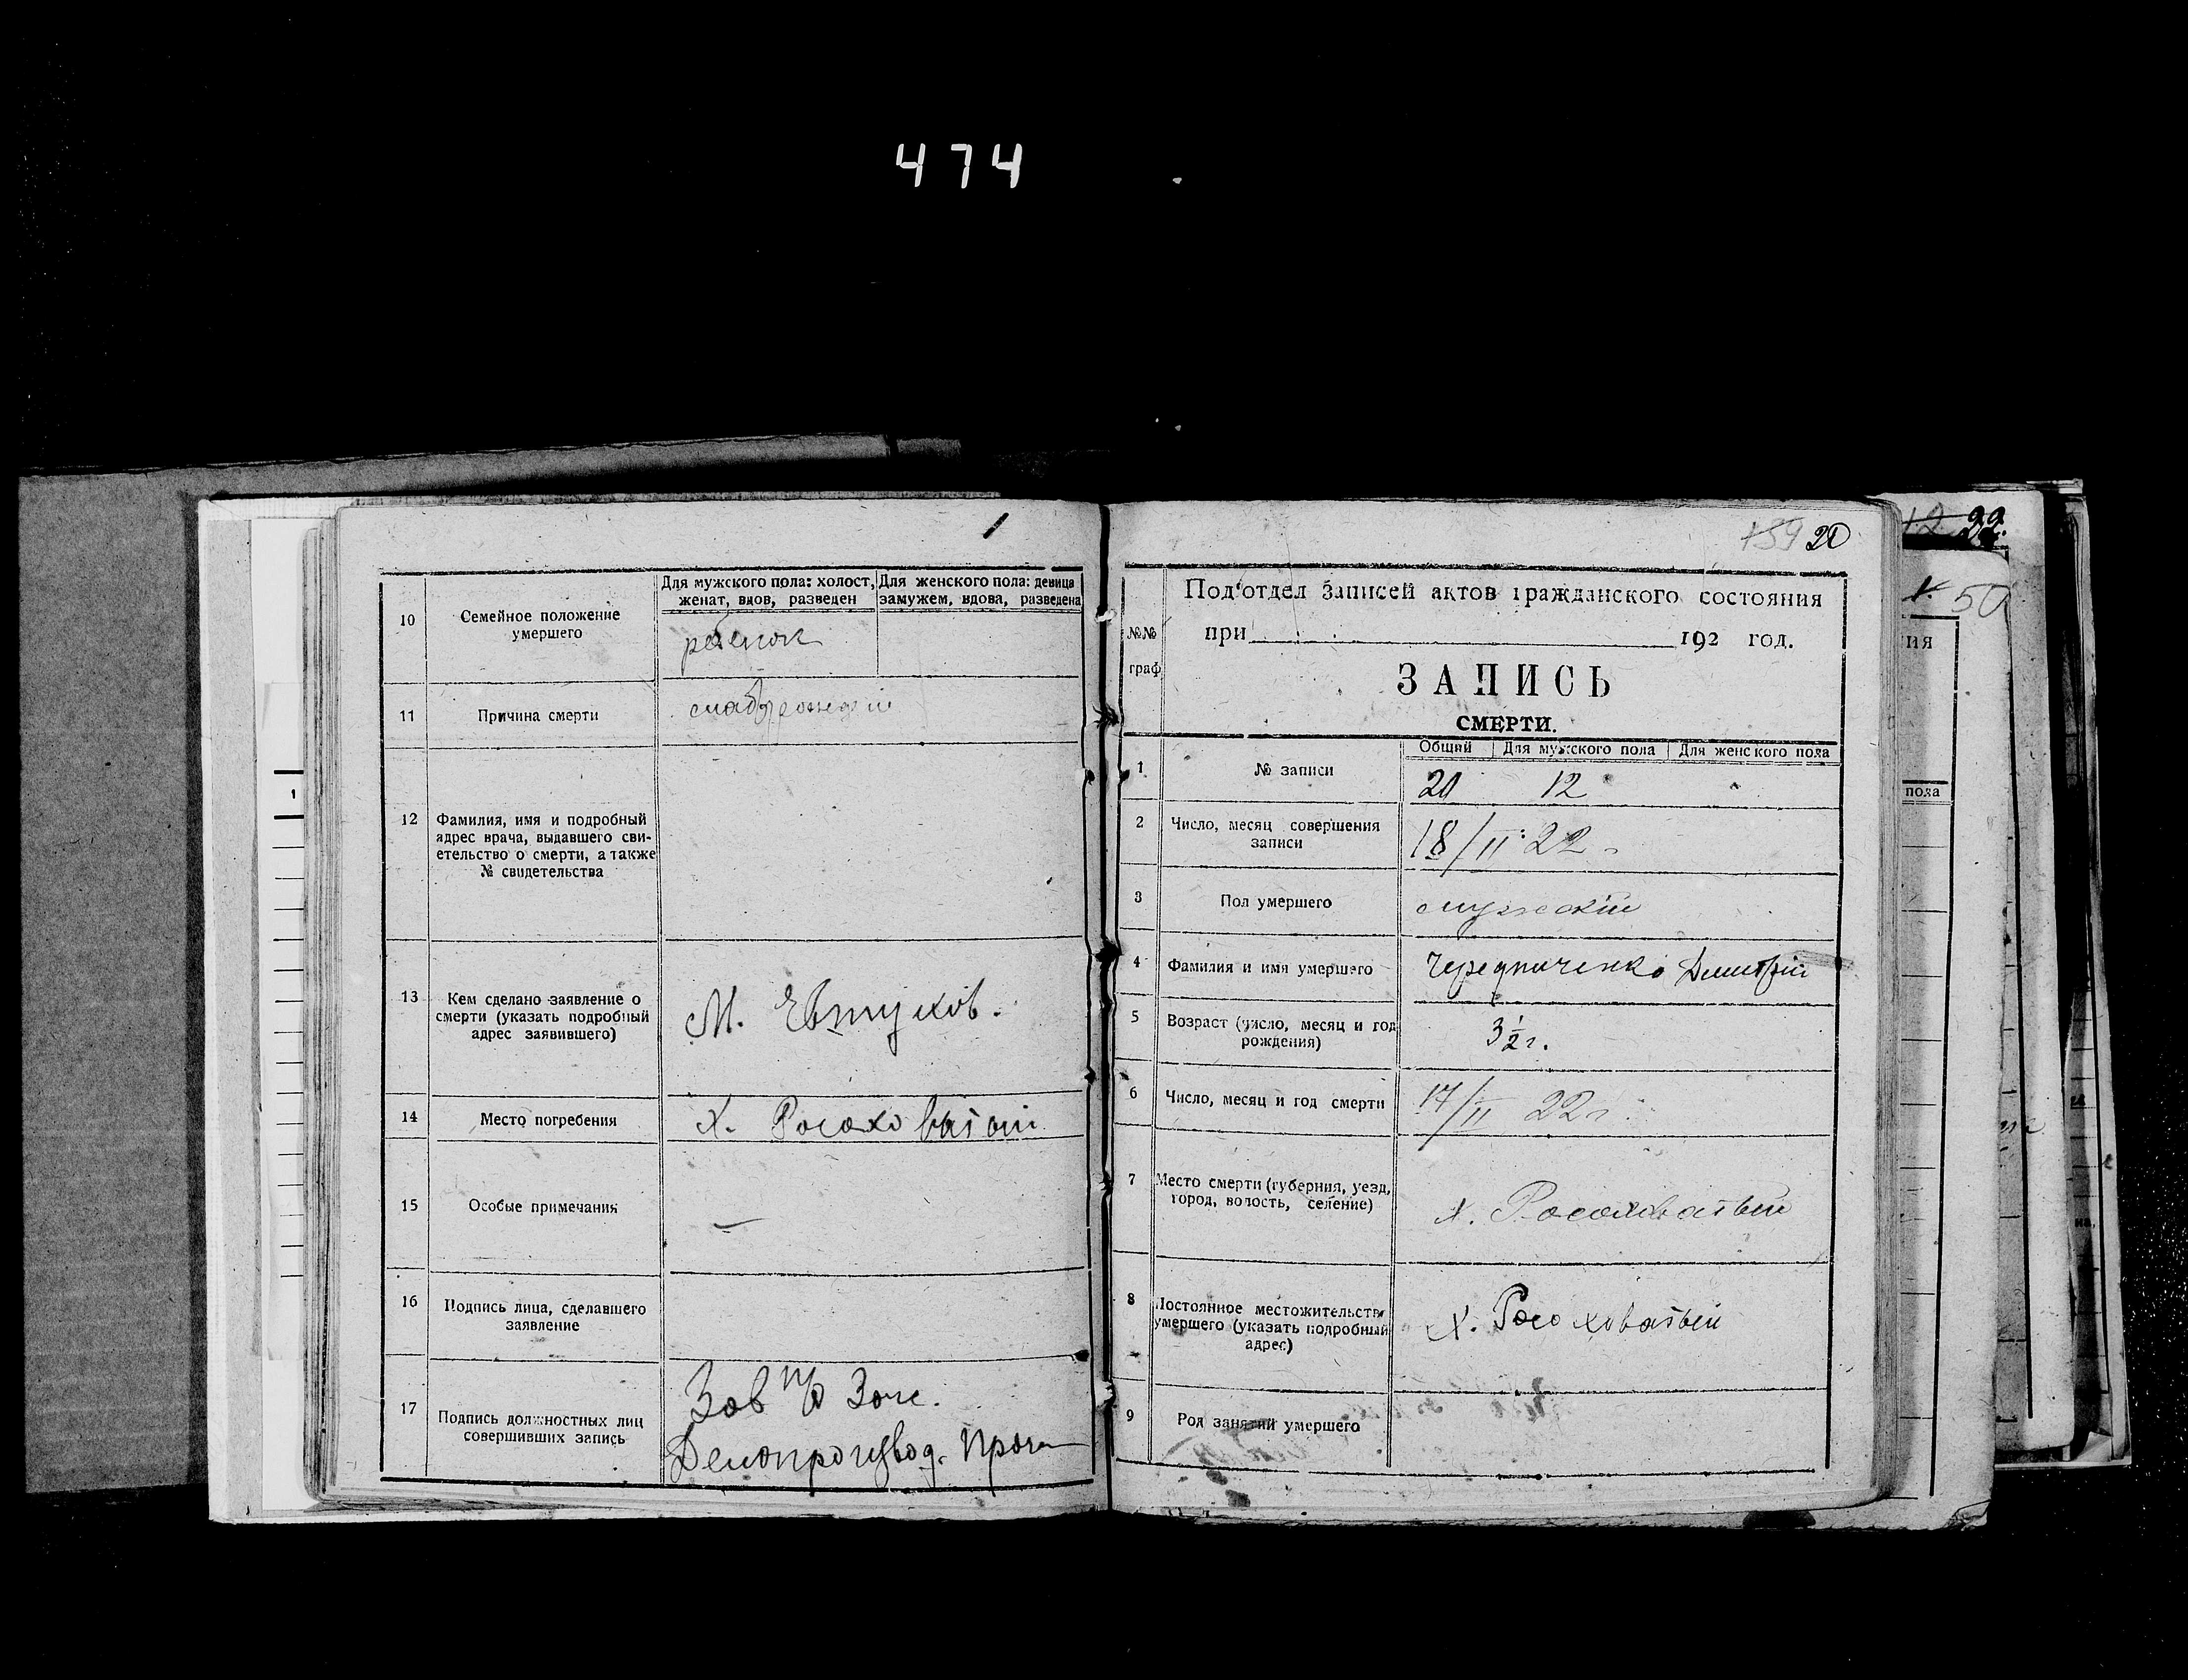 474
1
10
Семейное положение
умершего
Для мужского пола: холост,
женат, вдов, разведен
Для женского пола: девица
замужем, вдова, разведена
ребенок
11
Причина смерти
12
Фамилия, имя и подробный
адрес врача, выдавшего сви-
етельство о смерти, а также
№ свидетельства
13
Кем сделано заявление о
смерти (указать подробный
адрес заявившего)
М. Евтухов.
14
Место погребения
х. Росоховатый
15
Особые примечания
—
16
Подпись лица, сделавшего
заявление
17
Подпись должностных лиц
совершивших запись
Зав п/о Загс.
Делопроизвод.
159 20
№№
граф
Под'отдел записей актов гражданского состояния
при 192 год.
ЗАПИСЬ
СМЕРТИ.
Общий
Для мужского пола
Для женского пола
1
№ записи
20 12
2
Число, месяц совершения
записи
18/II 22 г
3
Пол умершего
мужский
4
Фамилия и имя умершего
Чередниченко Димитрий
5
Возраст (число, месяц и год
рождения)
3 1/2 г.
6
Число, месяц и год смерти
17/II 22 г
7
Место смерти (губерния, уезд,
город, волость, селение)
х. Росоховатый
8
Постоянное местожительство
умершего (указать подробный
адрес)
х. Росоховатый
9
Род занятий умершего
22
50
ия
пола
1